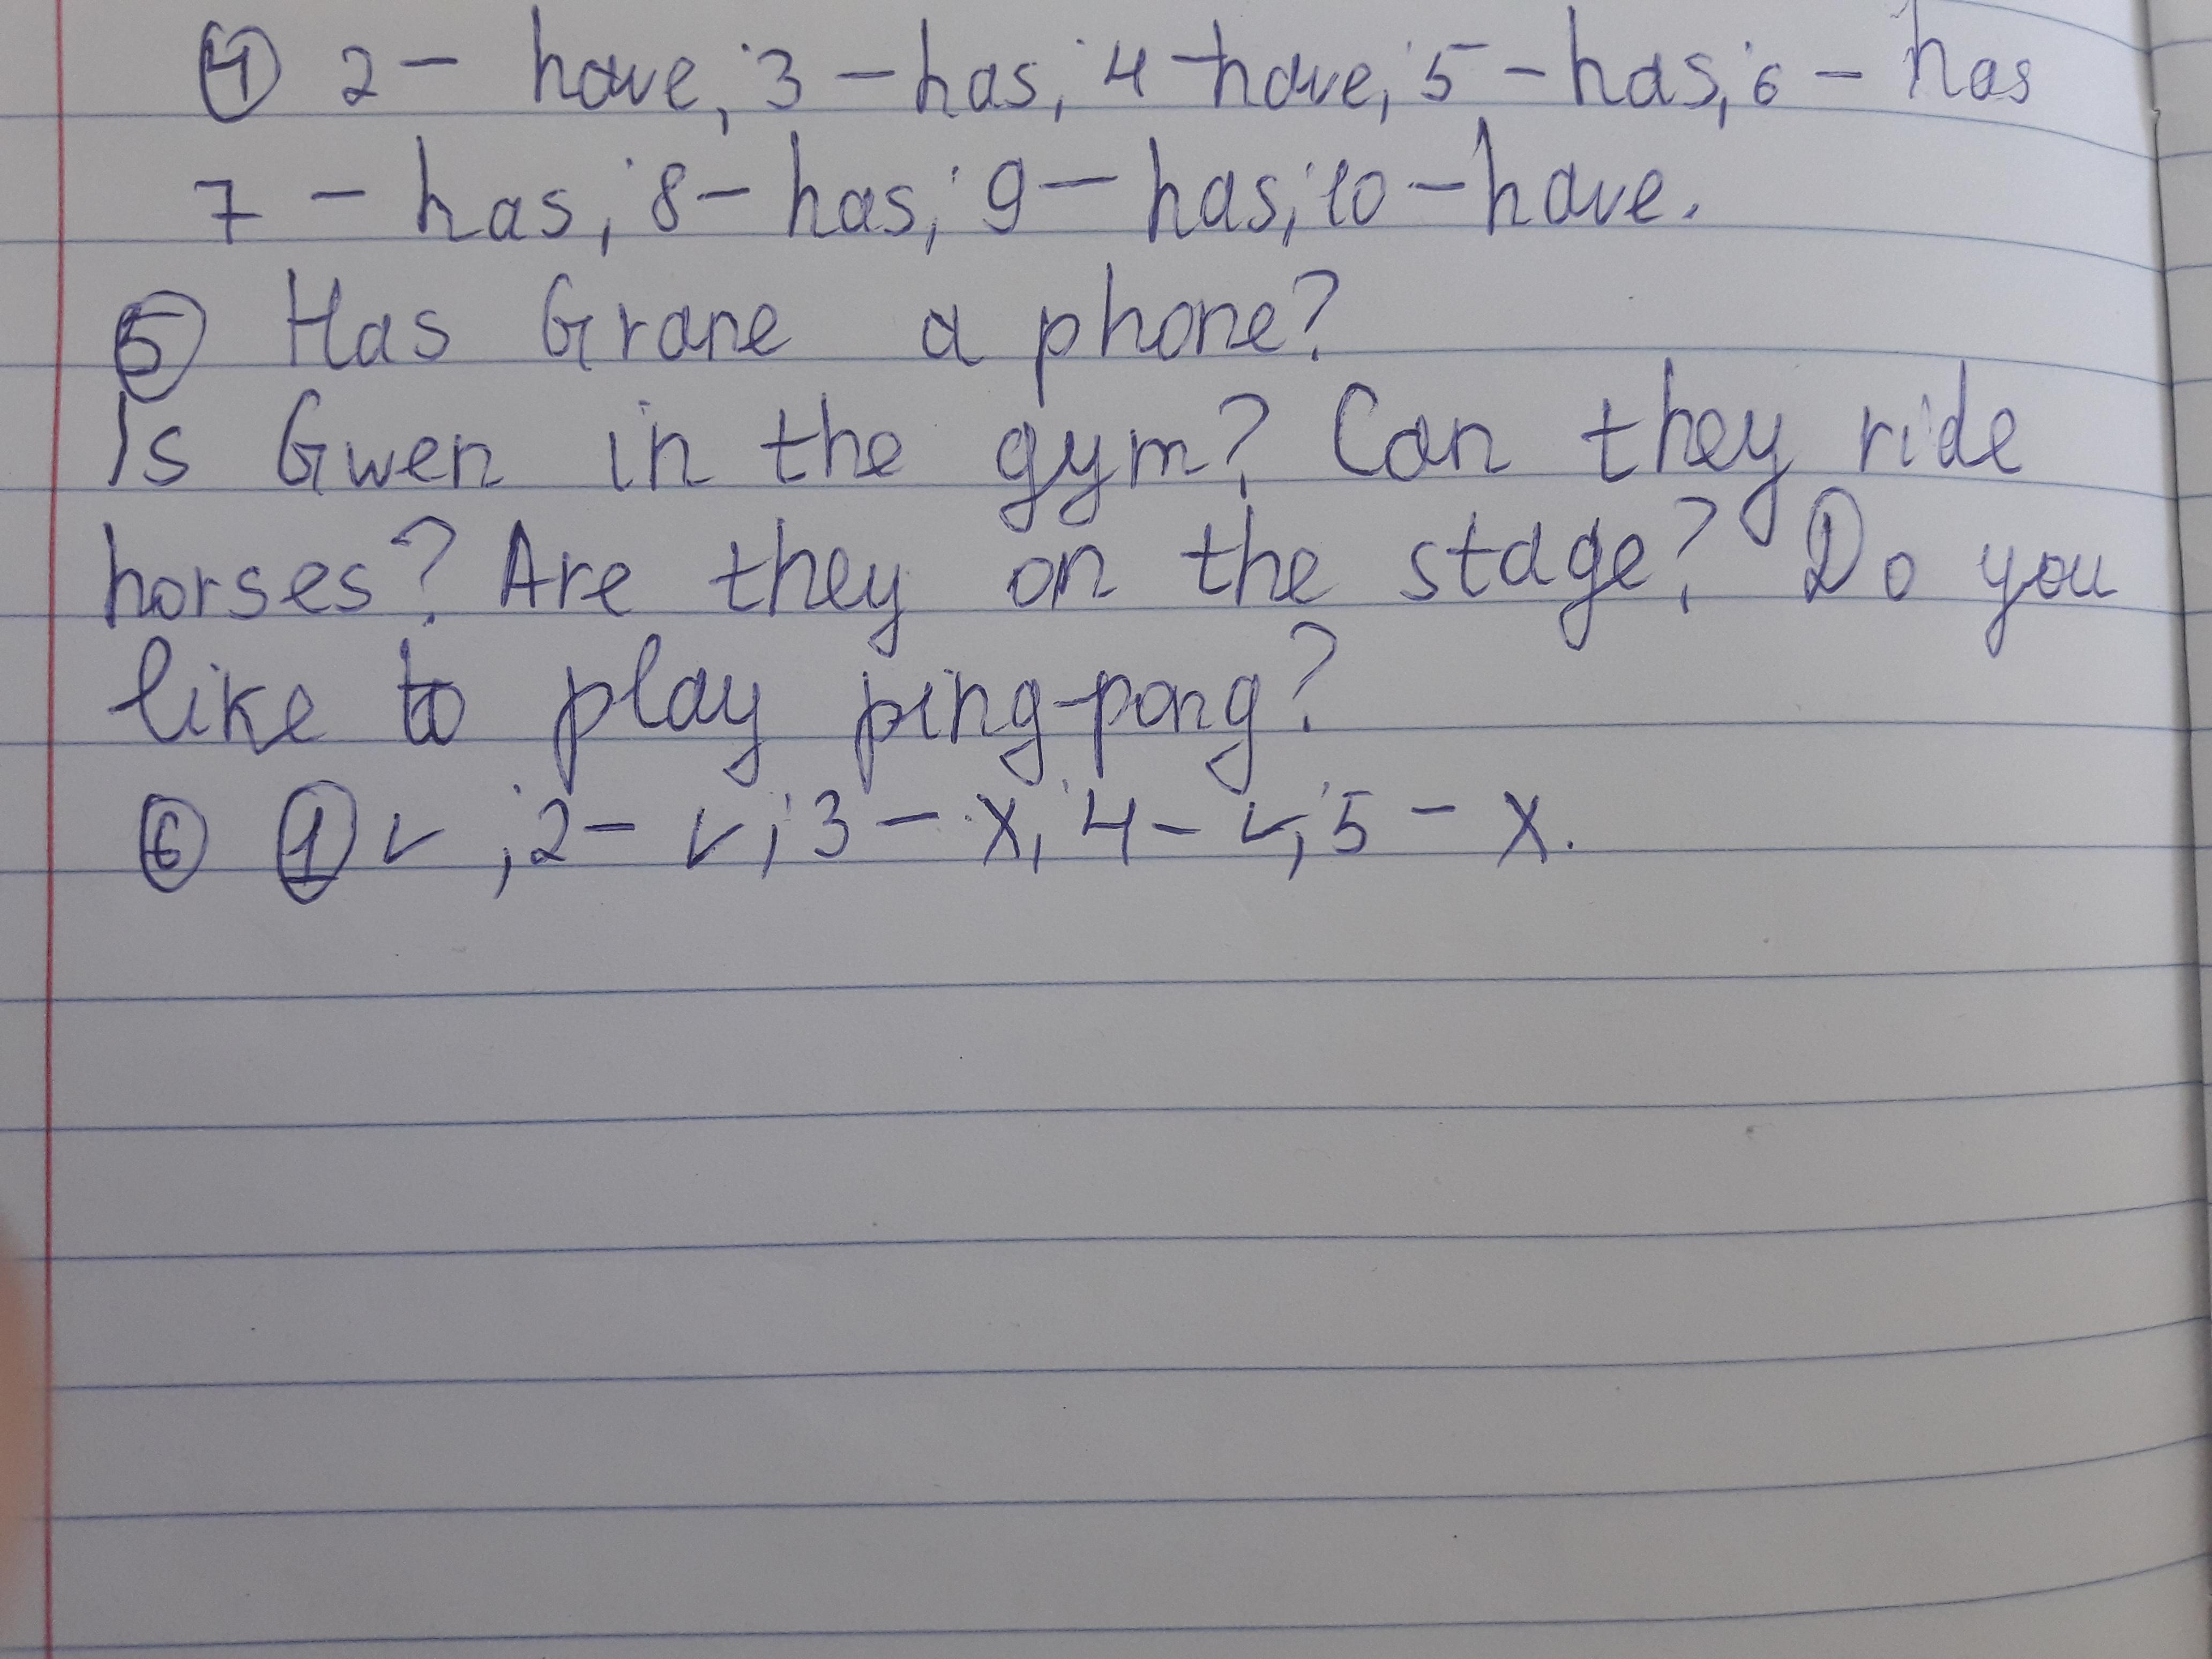 ④ 2 – have; 3 – has; 4 – have; 5 – has; 6 – has
7 – has; 8 – has; 9 – has; 10 – have.
⑤ Has Grane a phone?
Is Gwen in the gym? Can they ride
horses? Are they on the stage? Do you
like to play ping-pong?
⑥ ① ✓; 2 – ✓; 3 – X; 4 – ✓; 5 – X.